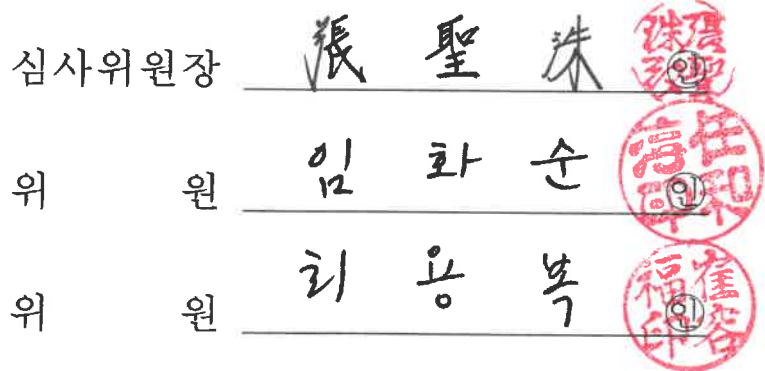 심사위원장 張 聖 洙 ㊞
위 원 임 화 순 ㊞
위 원 최 용 복 ㊞